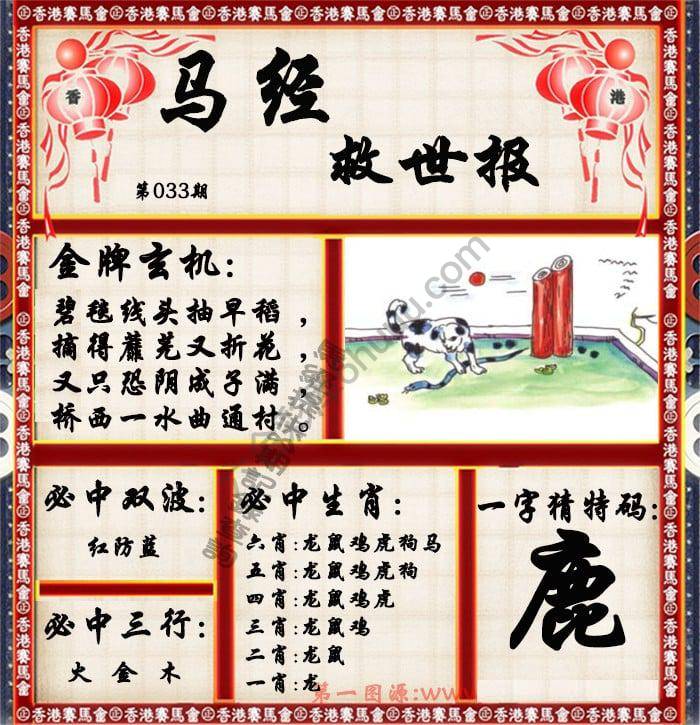 香港賽馬會㊣香港賽馬會㊣香港賽馬會㊣香港賽馬會㊣香港賽馬會㊣香港賽馬會
香
港
马经
救世报
第033期
金牌玄机:
碧毯线头抽早稻，
摘得蘼芜又折花，
又只恐阴成子满，
桥西一水曲通村。
必中双波:
红防蓝
必中三行:
火金木
必中生肖:
六肖:龙鼠鸡虎狗马
五肖:龙鼠鸡虎狗
四肖:龙鼠鸡虎
三肖:龙鼠鸡
二肖:龙鼠
一肖:龙
一字猜特码:
鹿
第一图源:www